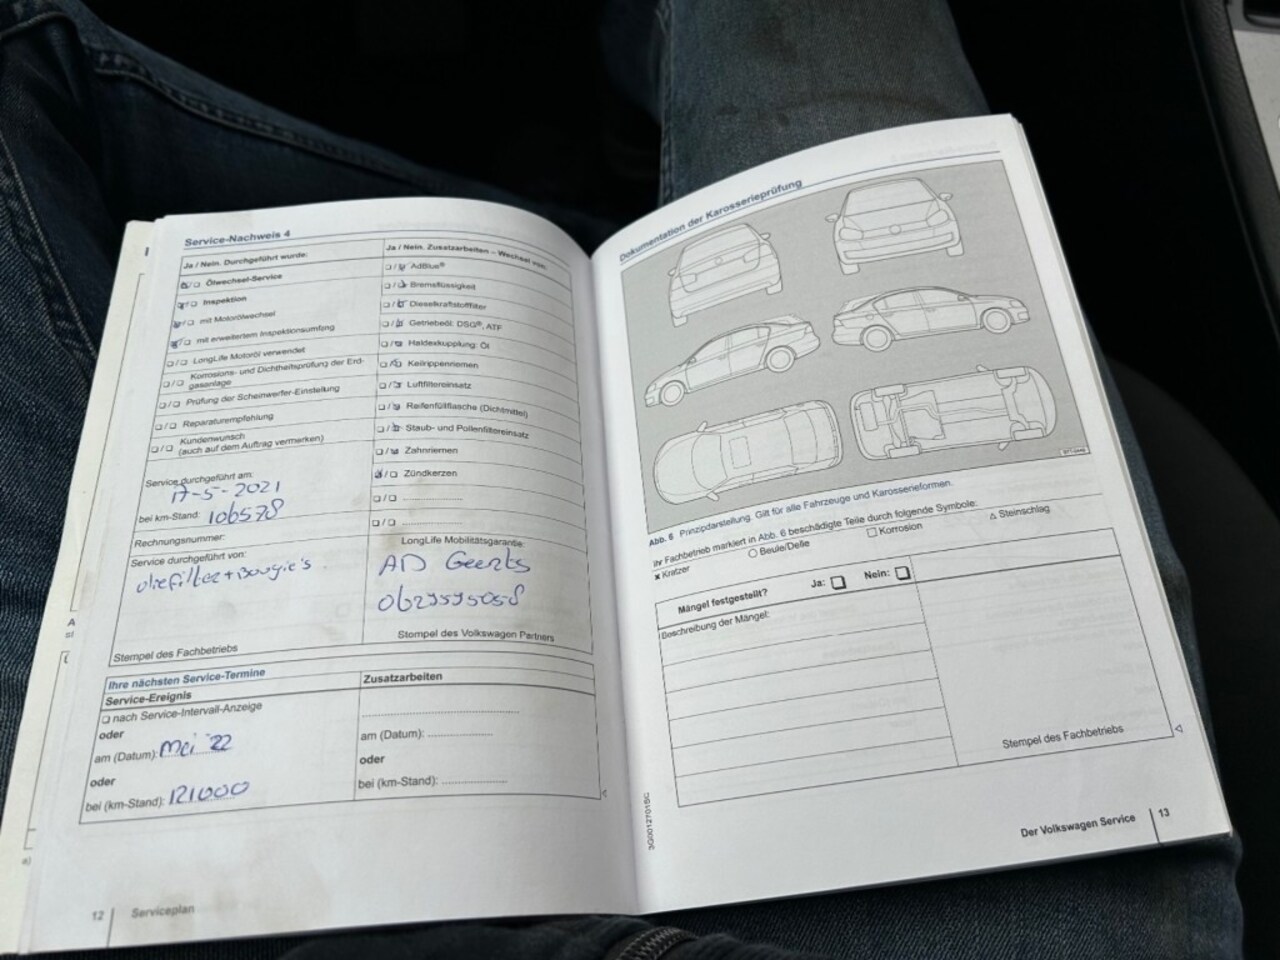 Service-Nachweis 4
Ja / Nein. Durchgeführt wurde:
Ölwechsel-Service
Inspektion
mit Motorölwechsel
mit erweitertem Inspektionsumfang
LongLife Motoröl verwendet
Korrosions- und Dichtheitsprüfung der Erd-
gasanlage
Prüfung der Scheinwerfer-Einstellung
Reparaturempfehlung
Kundenwunsch
(auch auf dem Auftrag vermerken)
Service durchgeführt am:
17-5-2021
bei km-Stand: 106578
Rechnungsnummer:
Service durchgeführt von:
oliefilter + Bougie's
Stempel des Fachbetriebs
Ja / Nein. Zusatzarbeiten – Wechsel von:
AdBlue®
Bremsflüssigkeit
Dieselkraftstofffilter
Getriebeöl: DSG®, ATF
Haldexkupplung: Öl
Keilrippenriemen
Luftfiltereinsatz
Reifenfüllflasche (Dichtmittel)
Staub- und Pollenfiltereinsatz
Zahnriemen
Zündkerzen
LongLife Mobilitätsgarantie:
AD Geerts
0627595058
Stempel des Volkswagen Partners
Ihre nächsten Service-Termine
Service-Ereignis
nach Service-Intervall-Anzeige
oder
am (Datum): Mei '22
oder
bei (km-Stand): 121000
Zusatzarbeiten
am (Datum):
oder
bei (km-Stand):
12 | Serviceplan
Dokumentation der Karosserieprüfung
Abb. 6 Prinzipdarstellung. Gilt für alle Fahrzeuge und Karosserieformen.
Ihr Fachbetrieb markiert in Abb. 6 beschädigte Teile durch folgende Symbole:
Kratzer
Beule/Delle
Korrosion
Steinschlag
Mängel festgestellt? Ja: Nein:
Beschreibung der Mängel:
Stempel des Fachbetriebs
3G0012701BC
Der Volkswagen Service | 13